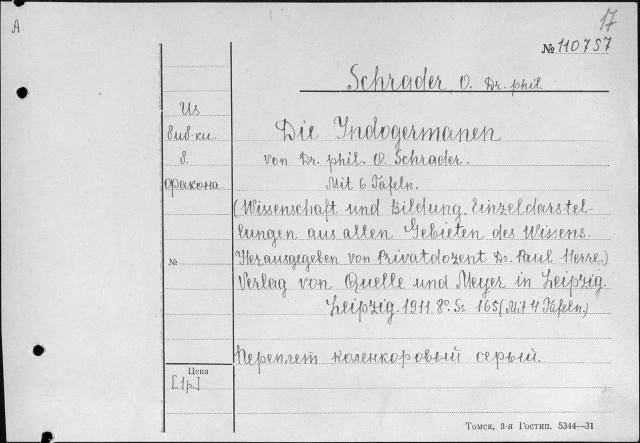 A
17
№ 110757
Schrader, O. Dr. phil.
Из
биб-ки
В.
фракона.
Die Indogermanen
von Dr. phil. O. Schrader.
Mit 6 Tafeln.
(Wissenschaft und Bildung. Einzeldarstel-
lungen aus allen Gebieten des Wissens.
№
Herausgegeben von Privatdozent Dr. Paul Herre.)
Verlag von Quelle und Meyer in Leipzig.
Leipzig. 1911. 8º. Ss 165 (Mit 4 Tafeln.)
Переплет коленкоровый серый.
Цена
[1р.]
Томск, 3-я Гостип. 5344—31